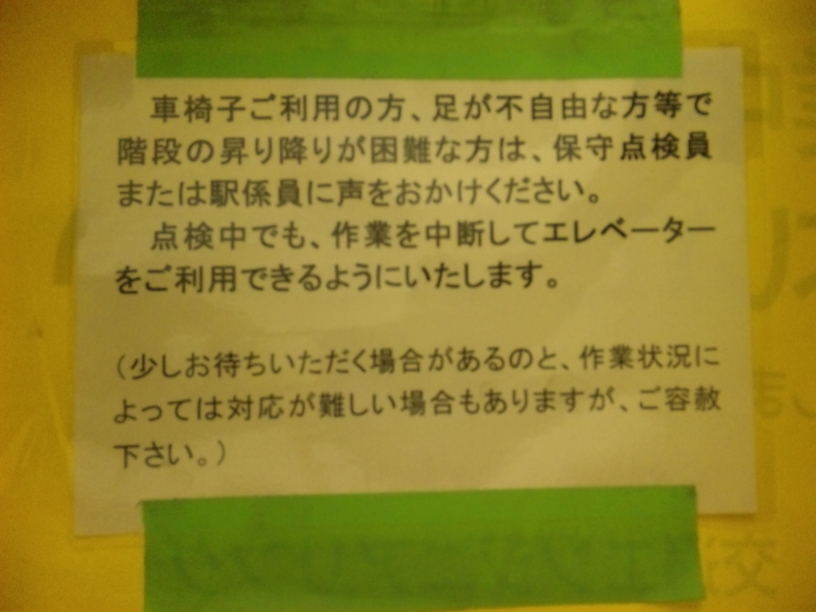 車椅子ご利用の方、足が不自由な方等で
階段の昇り降りが困難な方は、保守点検員
または駅係員に声をおかけください。
点検中でも、作業を中断してエレベーター
をご利用できるようにいたします。
（少しお待ちいただく場合があるのと、作業状況に
よっては対応が難しい場合もありますが、ご容赦
下さい。）